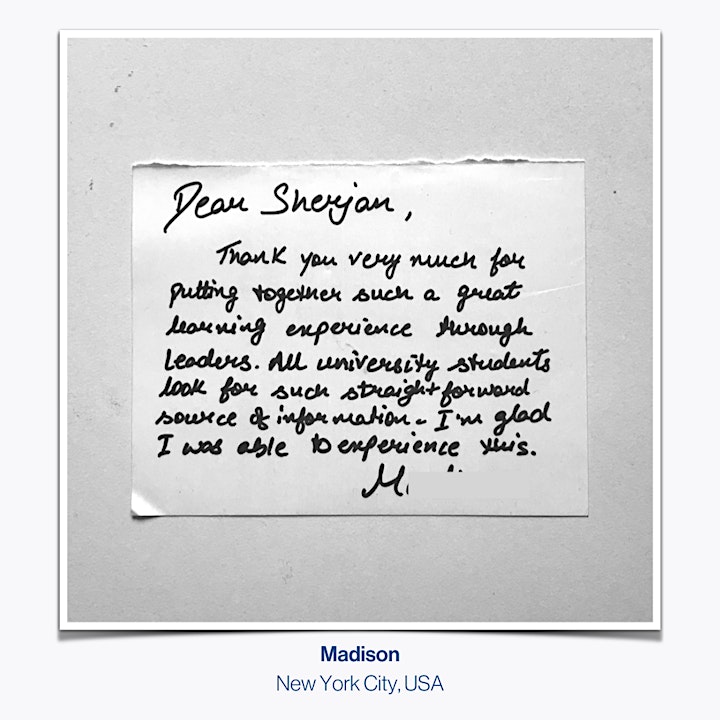 Dear Sherjan,
Thank you very much for
putting together such a great
learning experience through
Leaders. All university students
look for such straight forward
source of information. I'm glad
I was able to experience this.
Madison
New York City, USA